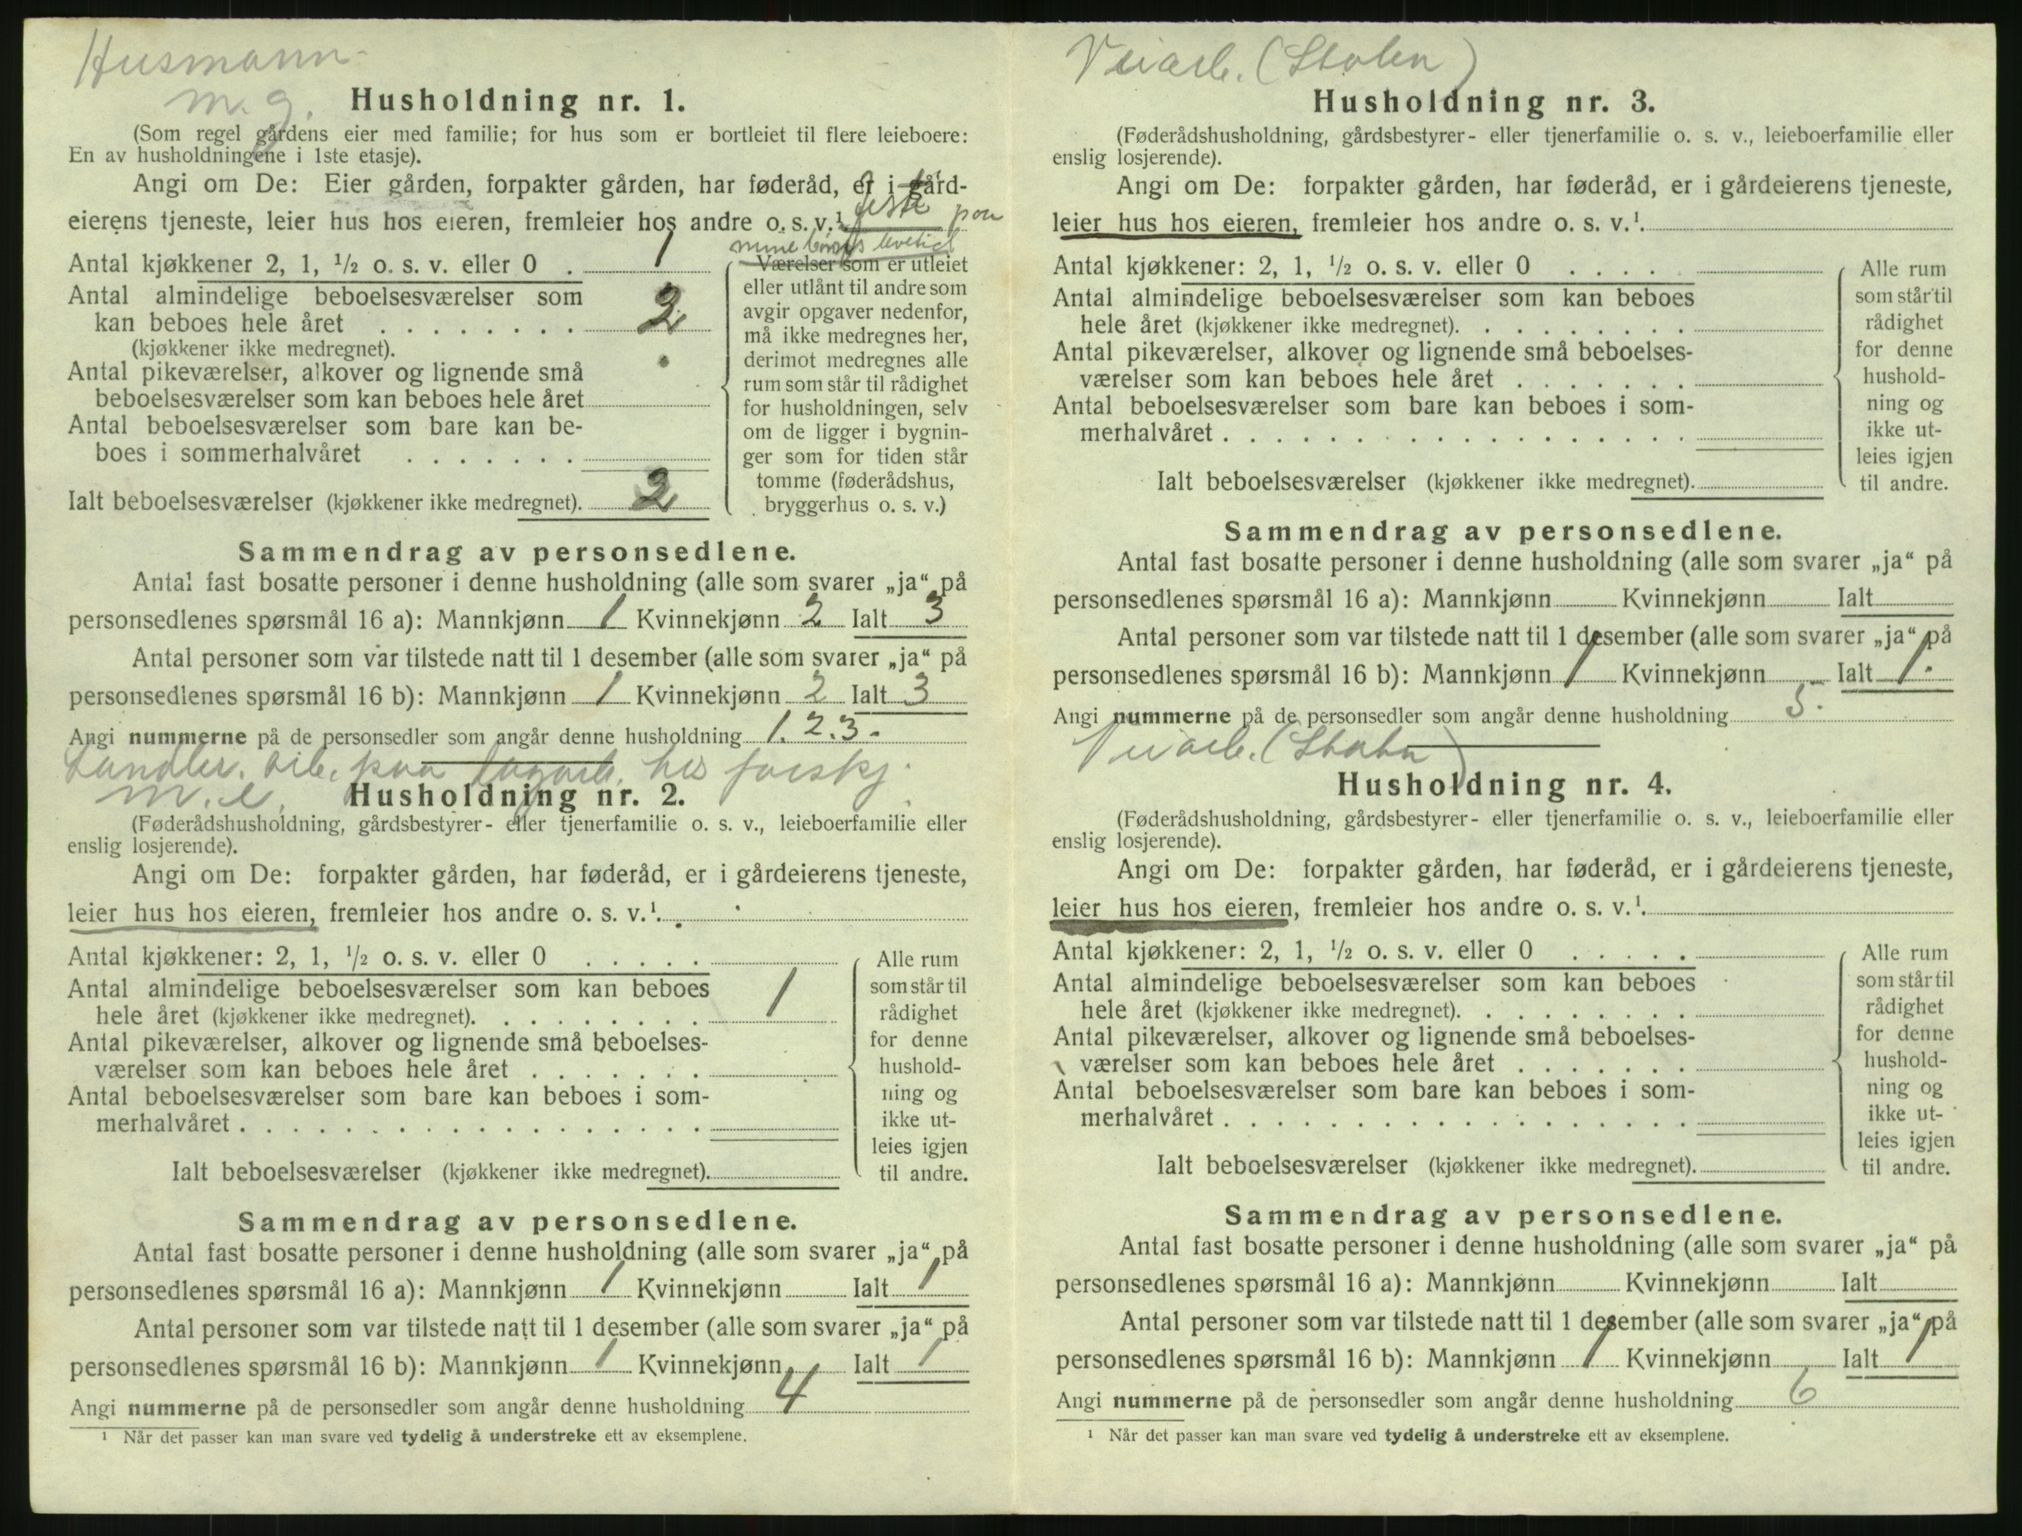 Husmann
m. g.
Husholdning nr. 1.
(Som regel gårdens eier med familie; for hus som er bortleiet til flere leieboere:
En av husholdningene i 1ste etasje).
Angi om De: Eier gården, forpakter gården, har føderåd, er i gård-
eierens tjeneste, leier hus hos eieren, fremleier hos andre o. s. v.¹ feste paa
mine levetid
Antal kjøkkener 2, 1, ½ o. s. v. eller 0 . 1
Antal almindelige beboelsesværelser som
kan beboes hele året . . . . . . . . 2
(kjøkkener ikke medregnet).
Antal pikeværelser, alkover og lignende små
beboelsesværelser som kan beboes hele året
Antal beboelsesværelser som bare kan be-
boes i sommerhalvåret . . . . . . .
Ialt beboelsesværelser (kjøkkener ikke medregnet). 2
Værelser som er utleiet
eller utlånt til andre som
avgir opgaver nedenfor,
må ikke medregnes her,
derimot medregnes alle
rum som står til rådighet
for husholdningen, selv
om de ligger i bygnin-
ger som for tiden står
tomme (føderådshus,
bryggerhus o. s. v.)
Sammendrag av personsedlene.
Antal fast bosatte personer i denne husholdning (alle som svarer „ja“ på
personsedlenes spørsmål 16 a): Mannkjønn 1 Kvinnekjønn 2 Ialt 3
Antal personer som var tilstede natt til 1 desember (alle som svarer „ja“ på
personsedlenes spørsmål 16 b): Mannkjønn 1 Kvinnekjønn 2 Ialt 3
Angi nummerne på de personsedler som angår denne husholdning 1. 2. 3.
Landbr. arb. paa hos forskj.
m. e.
Husholdning nr. 2.
(Føderådshusholdning, gårdsbestyrer- eller tjenerfamilie o. s. v., leieboerfamilie eller
enslig losjerende).
Angi om De: forpakter gården, har føderåd, er i gårdeierens tjeneste,
leier hus hos eieren, fremleier hos andre o. s. v.¹.
Antal kjøkkener: 2, 1, ½ o. s. v. eller 0 . . . . .
Antal almindelige beboelsesværelser som kan beboes
hele året (kjøkkener ikke medregnet). . . . . . . . . 1
Antal pikeværelser, alkover og lignende små beboelses-
værelser som kan beboes hele året . . . . . . .
Antal beboelsesværelser som bare kan beboes i som-
merhalvåret . . . . . . . . . . . . . . . . . .
Ialt beboelsesværelser (kjøkkener ikke medregnet).
Alle rum
som står til
rådighet
for denne
hushold-
ning og
ikke ut-
leies igjen
til andre.
Sammendrag av personsedlene.
Antal fast bosatte personer i denne husholdning (alle som svarer „ja“ på
personsedlenes spørsmål 16 a): Mannkjønn 1 Kvinnekjønn Ialt 1
Antal personer som var tilstede natt til 1 desember (alle som svarer „ja“ på
personsedlenes spørsmål 16 b): Mannkjønn 1 Kvinnekjønn Ialt 1
Angi nummerne på de personsedler som angår denne husholdning 4
¹ Når det passer kan man svare ved tydelig å understreke ett av eksemplene.
Veiarb. (Staten)
Husholdning nr. 3.
(Føderådshusholdning, gårdsbestyrer- eller tjenerfamilie o. s. v., leieboerfamilie eller
enslig losjerende).
Angi om De: forpakter gården, har føderåd, er i gårdeierens tjeneste,
leier hus hos eieren, fremleier hos andre o. s. v.¹.
Antal kjøkkener: 2, 1, ½ o. s. v. eller 0 . . . .
Antal almindelige beboelsesværelser som kan beboes
hele året (kjøkkener ikke medregnet). . . . . . . . .
Antal pikeværelser, alkover og lignende små beboelses-
værelser som kan beboes hele året . . . . . . .
Antal beboelsesværelser som bare kan beboes i som-
merhalvåret . . . . . . . . . . . . . . . . . .
Ialt beboelsesværelser (kjøkkener ikke medregnet).
Alle rum
som står til
rådighet
for denne
hushold-
ning og
ikke ut-
leies igjen
til andre.
Sammendrag av personsedlene.
Antal fast bosatte personer i denne husholdning (alle som svarer „ja“ på
personsedlenes spørsmål 16 a): Mannkjønn Kvinnekjønn Ialt
Antal personer som var tilstede natt til 1 desember (alle som svarer „ja“ på
personsedlenes spørsmål 16 b): Mannkjønn 1 Kvinnekjønn Ialt 1.
Angi nummerne på de personsedler som angår denne husholdning 5.
Veiarb. (Staten)
Husholdning nr. 4.
(Føderådshusholdning, gårdsbestyrer- eller tjenerfamilie o. s. v., leieboerfamilie eller
enslig losjerende).
Angi om De: forpakter gården, har føderåd, er i gårdeierens tjeneste,
leier hus hos eieren, fremleier hos andre o. s. v.¹.
Antal kjøkkener: 2, 1, ½ o. s. v. eller 0 . . . . .
Antal almindelige beboelsesværelser som kan beboes
hele året (kjøkkener ikke medregnet). . . . . . . . .
Antal pikeværelser, alkover og lignende små beboelses-
værelser som kan beboes hele året . . . . . . .
Antal beboelsesværelser som bare kan beboes i som-
merhalvåret . . . . . . . . . . . . . . . . . .
Ialt beboelsesværelser (kjøkkener ikke medregnet).
Alle rum
som står til
rådighet
for denne
hushold-
ning og
ikke ut-
leies igjen
til andre.
Sammendrag av personsedlene.
Antal fast bosatte personer i denne husholdning (alle som svarer „ja“ på
personsedlenes spørsmål 16 a): Mannkjønn Kvinnekjønn Ialt
Antal personer som var tilstede natt til 1 desember (alle som svarer „ja“ på
personsedlenes spørsmål 16 b): Mannkjønn 1 Kvinnekjønn Ialt 1
Angi nummerne på de personsedler som angår denne husholdning 6
¹ Når det passer kan man svare ved tydelig å understreke ett av eksemplene.